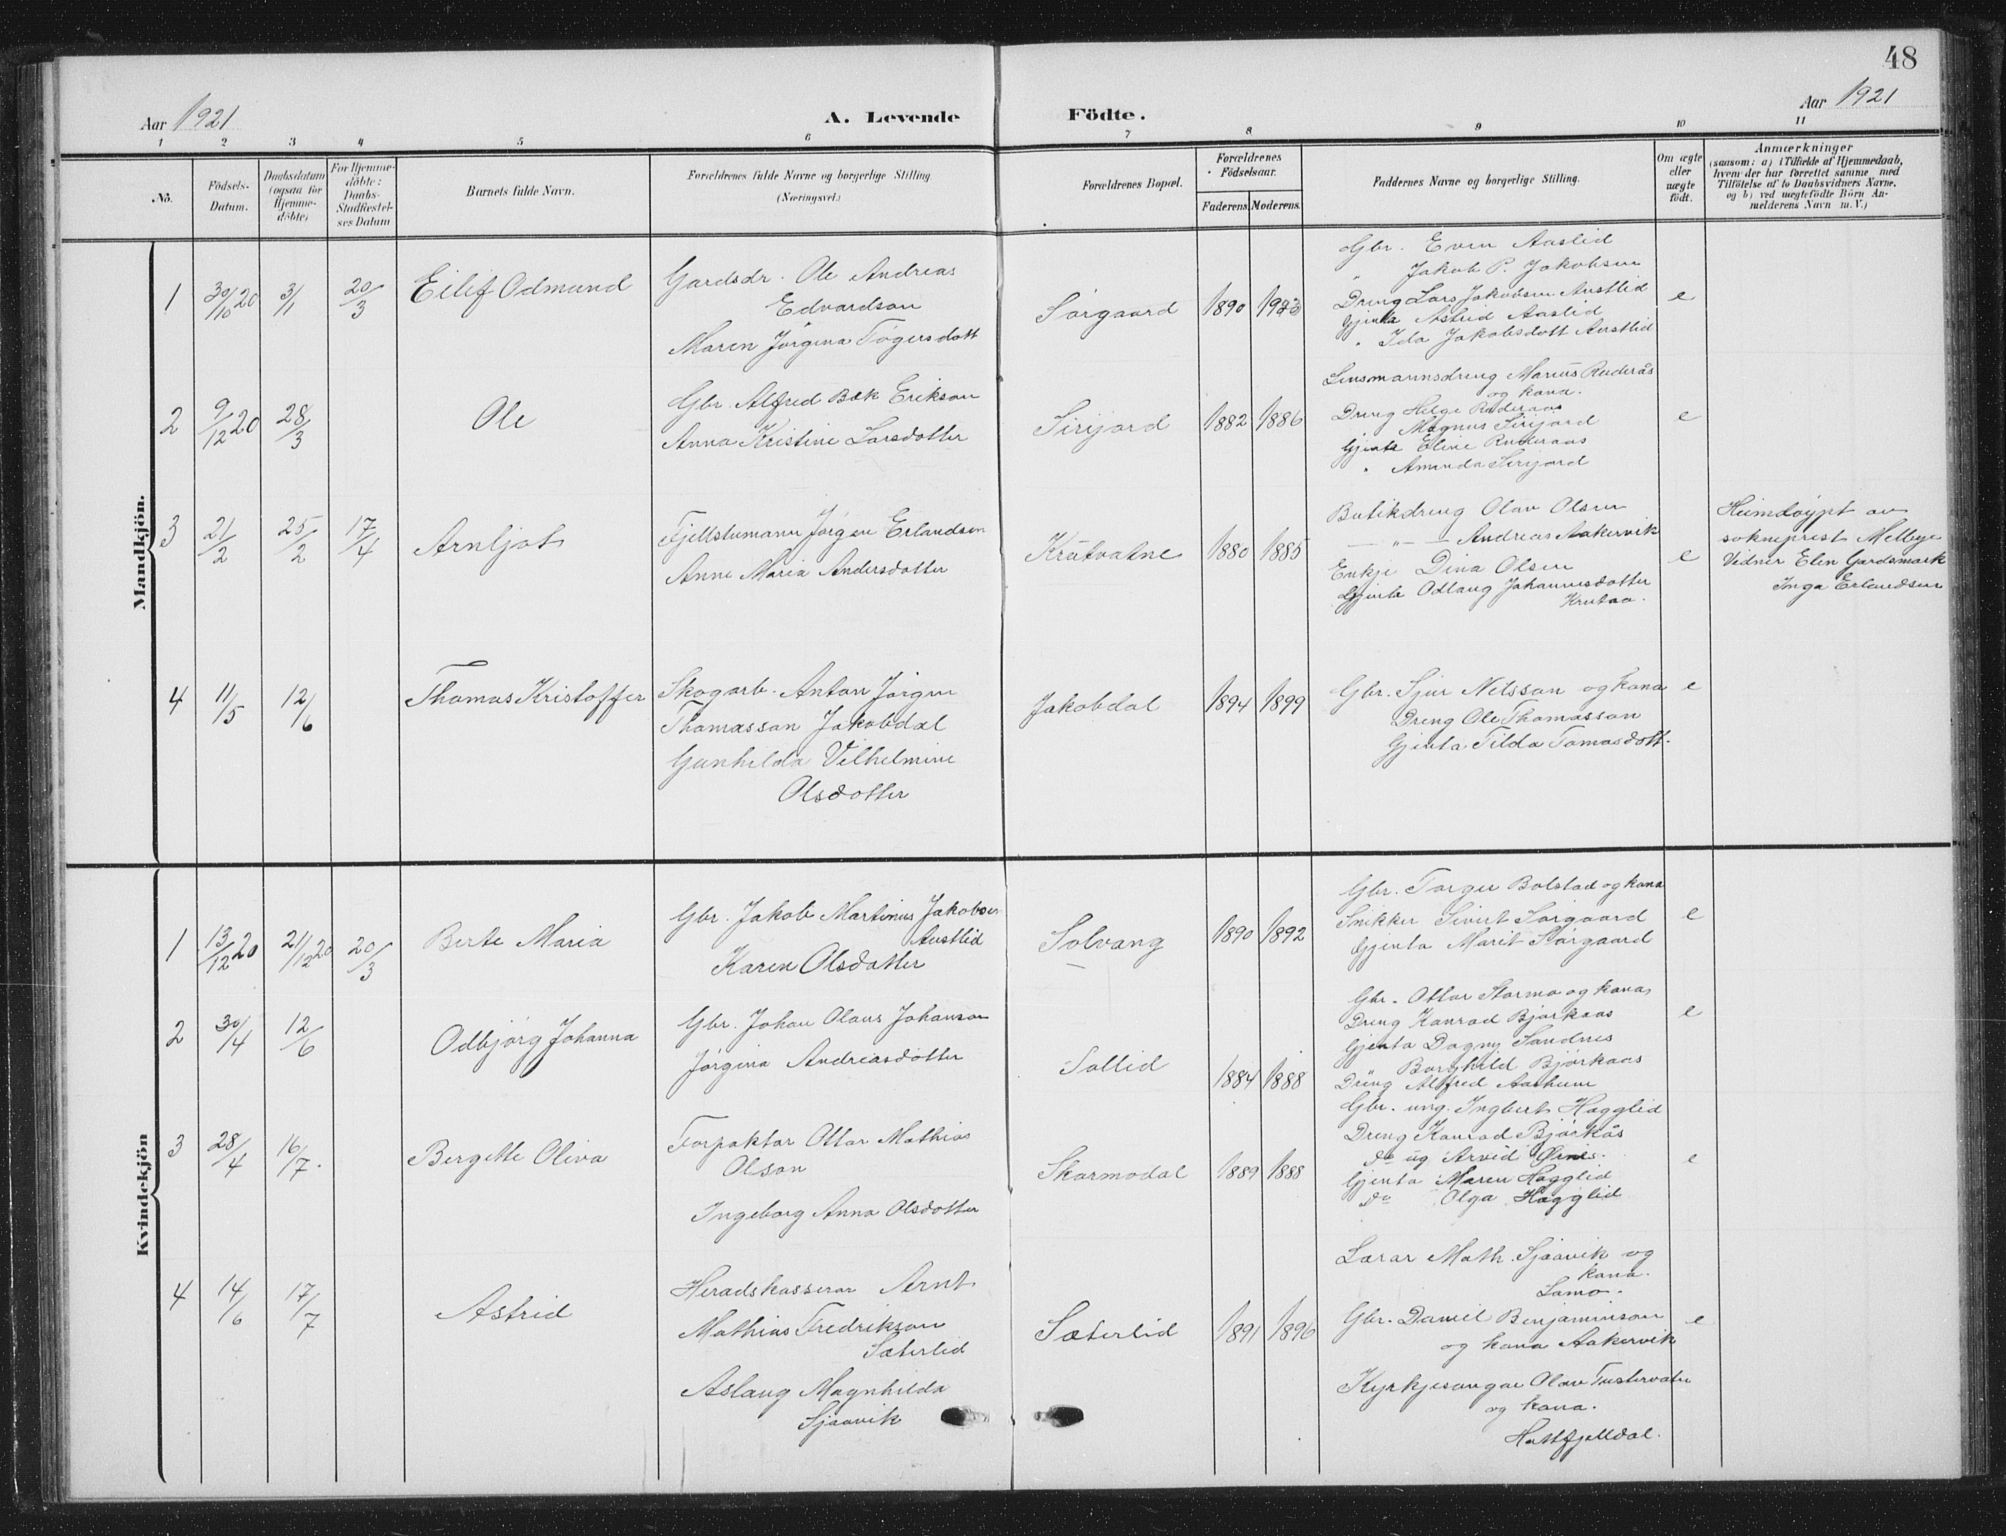 48
Aar 1921
A. Levende
Födte.
Aar 1921
1 2 3 4 5 6 7 8 9 10 11
No.
Födsels-
Datum.
Daabsdatum
(ogsaa for
Hjemme-
döbte)
For Hjemme-
döbte:
Daabs-
Stadfæstel-
ses Datum
Barnets fulde Navn.
Forældrenes fulde Navne og borgerlige Stilling
(Næringsvei.)
Forældrenes Bopæl.
Forældrenes
Födselsaar.
Faderens Moderens.
Faddernes Navne og borgerlige Stilling.
Om ægte
eller
uægte
født.
Anmærkninger
(saasom: a) i Tilfælde af Hjemmedaab,
hvem der har forrettet samme, med
Tilföielse af to Daabsvidners Navne,
og b) ved uægtefödte Börn An-
melderens Navn m. V.)
Mandkjön.
1 30/10 20 3/1 20/3 Eilif Odmund
Gardsdr. Ole Andreas
Edvardson
Maren Jørgina Tøgersdott
Sørgaard 1890
Gbr. Even Aaslid
" Jakob P. Jakobsen
Dreng Lars Jakobsen Austlid
Gjenta Astrid Aaslid
" Ida Jakobsdott Austlid
e
2 9/12 20 28/3 Ole
Gbr. Alfred Bæk Erikson
Anna Kristine Larsdotter
Sirijord 1882 1886
Lensmannsdreng Marius Ruderås
og kona.
Dreng Helge Ruderaas
" Magnus Sirijord
Gjenta Eline Ruderaas
" Amanda Sirijord
e
3 21/2 25/2 17/4 Arnljot
Fjellstumann Jørgen Erlandsen
Anne Maria Andersdotter
Krutvatne 1880 1885
Butikdreng Olav Olsen
— " — Andreas Aakervik
Enkje Dina Olsen
Gjenta Odlaug Johannesdotter
Krutaa.
e
Heimdøypt av
sokneprest Melbye
Vidner Elen Gardsmark
Inga Erlandsen
4 11/5 12/6 Thomas Kristoffer
Skogarb. Anton Jørgen
Thomasson Jakobdal
Gunhilda Vilhelmine
Olsdotter
Jakobdal 1894 1899
Gbr. Sjur Nelsson og kona
Dreng Ole Thomasson
Gjenta Tilda Tomasdott.
e
Kvindekjön
1 13/12 20 21/12 20 20/3 Berte Maria
Gbr. Jakob Martinus Jakobsen
Austlid
Karen Olsdatter
Solvang 1890 1892
Gbr. Torger Bolstad og kona
Snikker Sivert Sørgaard
Gjenta Marit Sørgaard
e
2 30/4 12/6 Odbjørg Johanna
Gbr. Johan Olaus Johanson
Jørgina Andreasdotter
Sollid 1884 1888
Gbr. Ottar Stormo og kona
Dreng Konrad Bjørkaas
Gjenta Dagny Sandnes
" Borghild Bjørkaas
Dreng Alfred Aashum
e
3 28/4 16/7. Bergette Oliva
Forpaktar Ottar Mathias
Olson
Ingeborg Anna Olsdotter
Skarmodal 1889 1888
Gbr. ung. Ingbert Hagglid
Dreng Konrad Bjørkås
do ug Arvid Ørnes.
Gjenta Maren Hagglid
do Olga Hagglid
e
4 14/6 17/7 Astrid
Heradskasserar Arnt
Mathias Fredrikson
Sæterlid
Aslaug Magnhilda
Sjaavik
Sæterlid 1891 1896
Lærar Math. Sjaavik og
kona.
Lamo.
Gbr. Daniel Benjaminson
og kona Aakervik
Kyrkjesongar Olav Tustervatn
og kona.
Hattfjelldal.
e